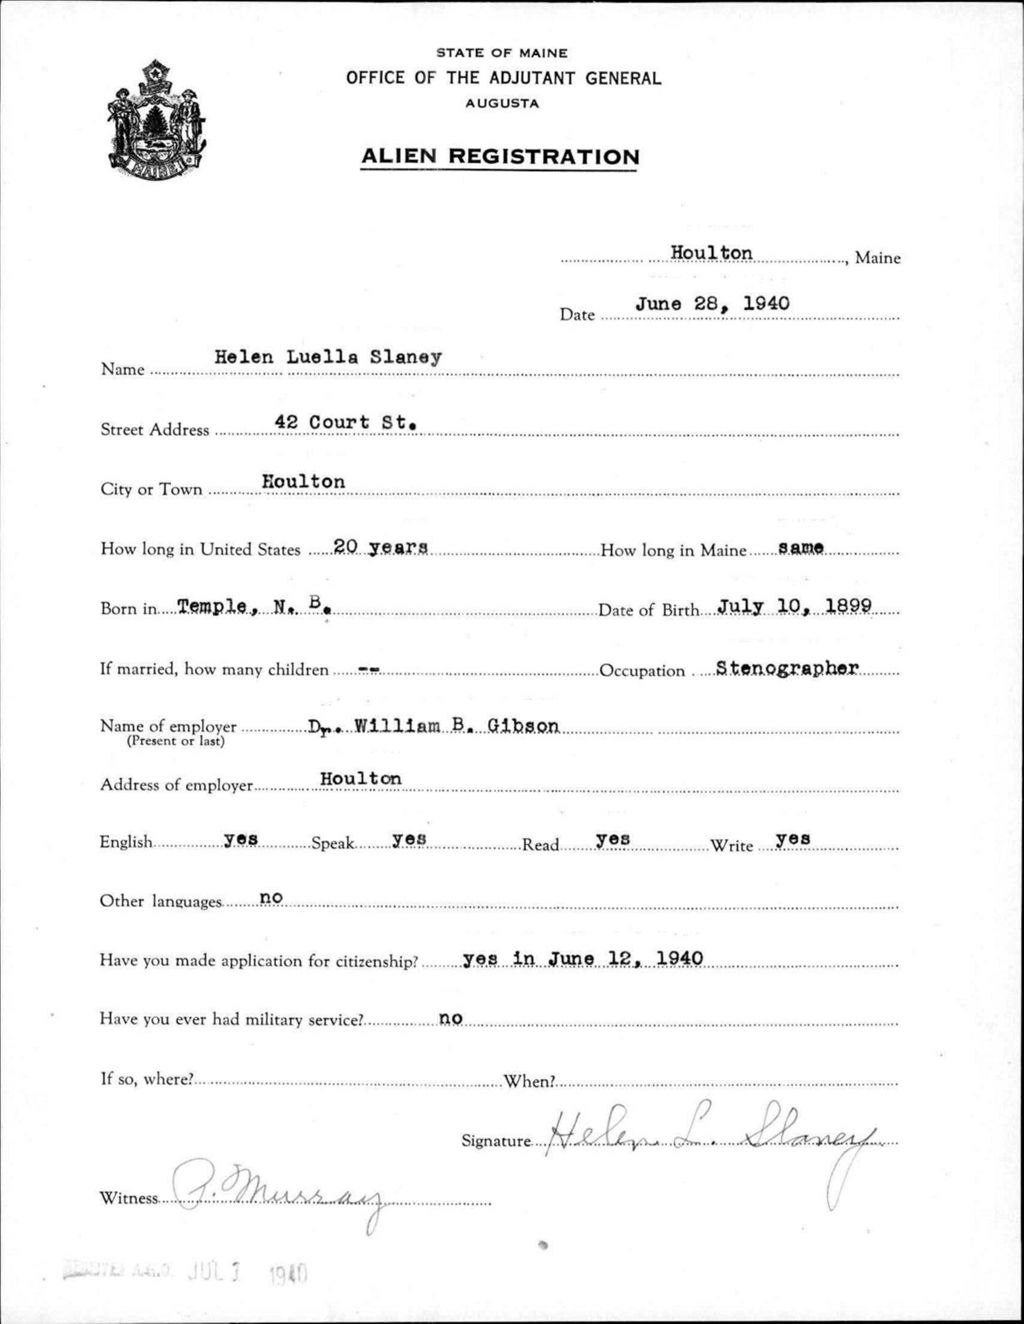 STATE OF MAINE
OFFICE OF THE ADJUTANT GENERAL
AUGUSTA
ALIEN REGISTRATION
MAINE
Houlton, Maine
Date June 28, 1940
Name Helen Luella Slaney
Street Address 42 Court St.
City or Town Houlton
How long in United States 20 years How long in Maine same
Born in Temple, N. B. Date of Birth July 10, 1899
If married, how many children -- Occupation Stenographer
Name of employer Dr. William B. Gibson
(Present or last)
Address of employer Houlton
English yes Speak yes Read yes Write yes
Other languages no
Have you made application for citizenship? yes in June 12, 1940
Have you ever had military service? no
If so, where? When?
Signature Helen L. Slaney
Witness P. Murray
A.G.O. JUL 1940